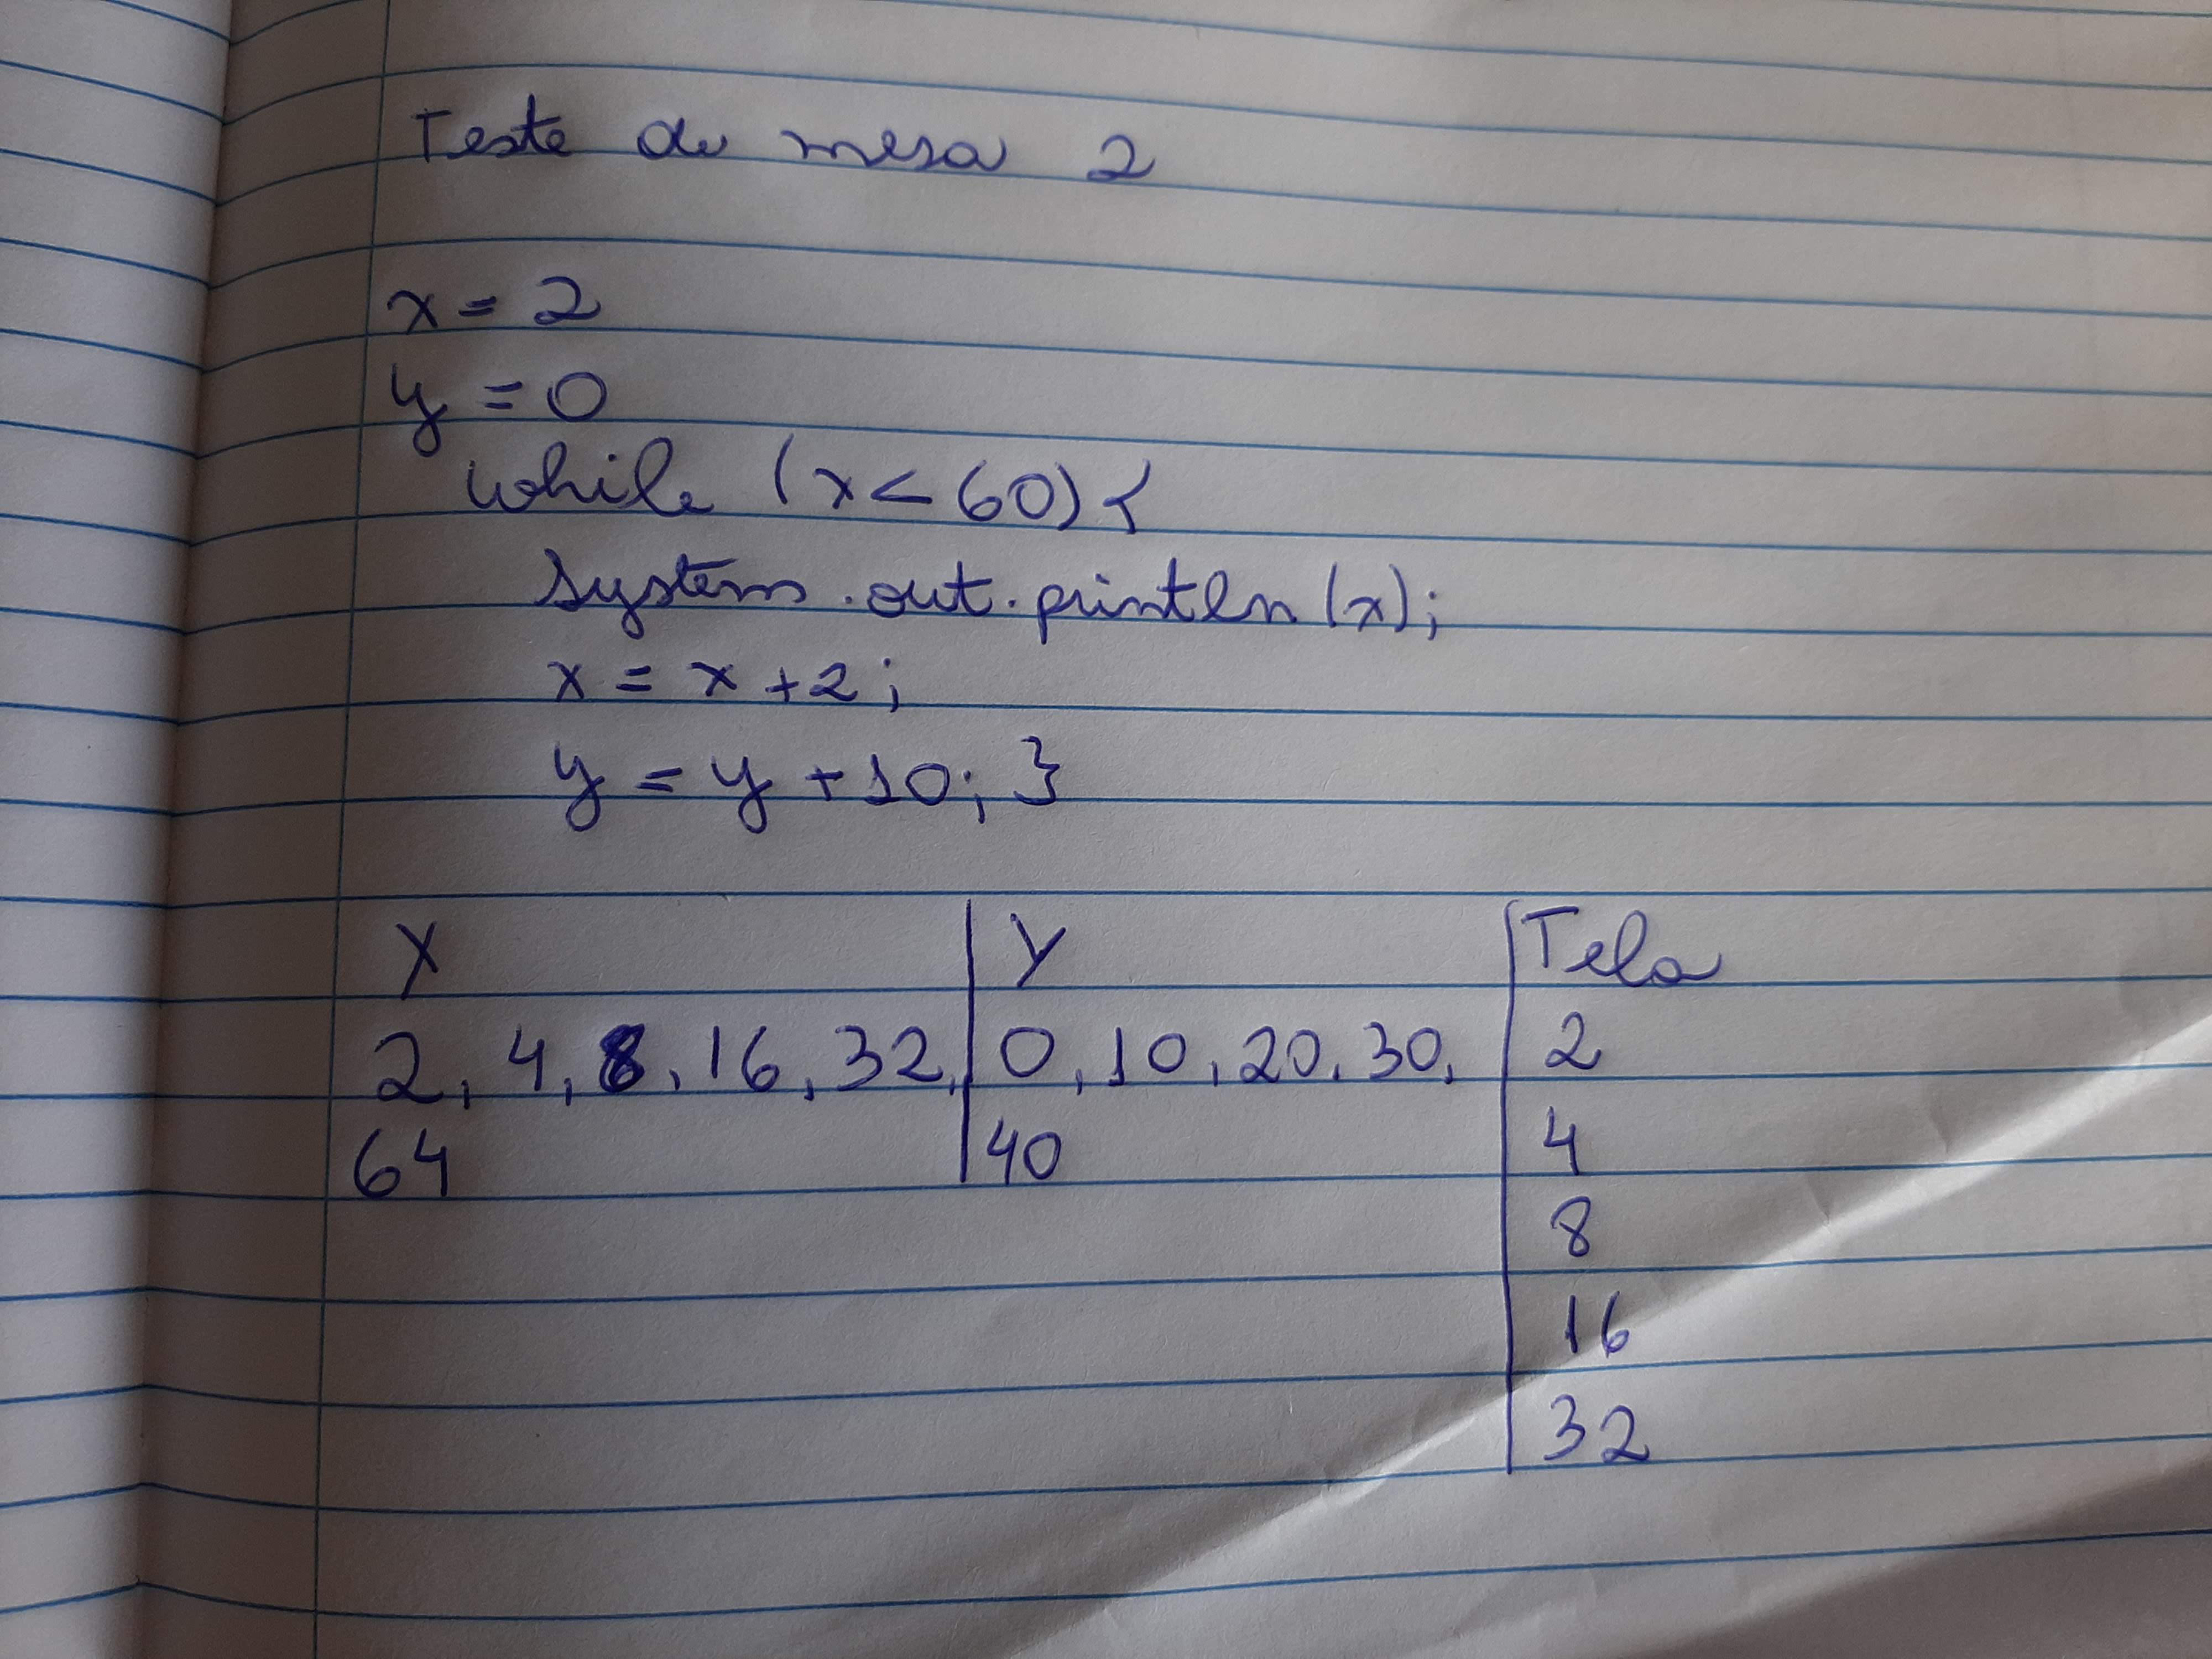 Teste de mesa 2
x = 2
y = 0
while (x < 60) {
system.out.println(x);
x = x + 2;
y = y + 10; }
X Y Tela
2, 4, 8, 16, 32, 0, 10, 20, 30, 2
64 40 4
8
16
32